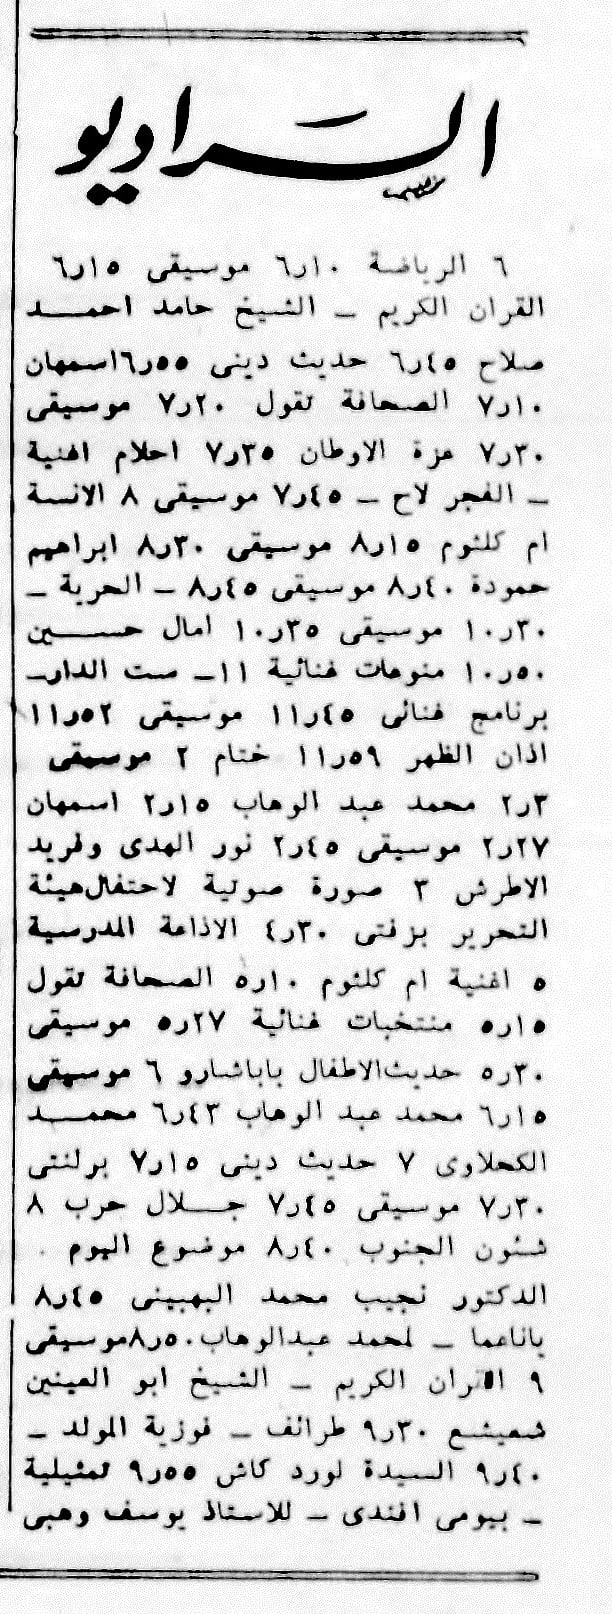 الراديو
٦ الرياضة ٦٫١٠ موسيقى ٦٫١٥
القران الكريم ــ الشيخ حامد احمد
صلاح ٦٫٤٥ حديث دينى ٦٫٥٥ اسمهان
٧٫١٠ الصحافة تقول ٧٫٢٠ موسيقى
٧٫٣٠ عزة الاوطان ٧٫٣٥ احلام اغنية
ــ الفجر لاح ــ ٧٫٤٥ موسيقى ٨ الانسة
ام كلثوم ٨٫١٥ موسيقى ٨٫٣٠ ابراهيم
حمودة ٨٫٤٠ موسيقى ٨٫٤٥ ــ الحرية ــ
١٠٫٣٠ موسيقى ١٠٫٣٥ امال حسين
١٠٫٥٠ منوعات غنائية ١١ ــ ست الدار ــ
برنامج غنائى ١١٫٤٥ موسيقى ١١٫٥٢
اذان الظهر ١١٫٥٩ ختام ٢ موسيقى
٢٫٣ محمد عبد الوهاب ٢٫١٥ اسمهان
٢٫٢٧ موسيقى ٢٫٤٥ نور الهدى وفريد
الاطرش ٣ صورة صوتية لاحتفال هيئة
التحرير بزفتى ٤٫٣٠ الاذاعة المدرسية
٥ اغنية ام كلثوم ٥٫١٠ الصحافة تقول
٥٫١٥ منتخبات غنائية ٥٫٢٧ موسيقى
٥٫٣٠ حديث الاطفال باباشارو ٦ موسيقى
٦٫١٥ محمد عبد الوهاب ٦٫٤٣ محمد
الكحلاوى ٧ حديث دينى ٧٫١٥ برلنتى
٧٫٣٠ موسيقى ٧٫٤٥ جلال حرب ٨
شئون الجنوب ٨٫٤٠ موضوع اليوم .
الدكتور نجيب محمد البهبيتى ٨٫٤٥
ياناعما ــ لمحمد عبدالوهاب ٨٫٥٠ موسيقى
٩ القران الكريم ــ الشيخ ابو العينين
شعيشع ٩٫٣٠ طرائف ــ فوزية المولد ــ
٩٫٤٠ السيدة لورد كاش ٩٫٥٥ تمثيلية
ــ بيومى افندى ــ للاستاذ يوسف وهبى